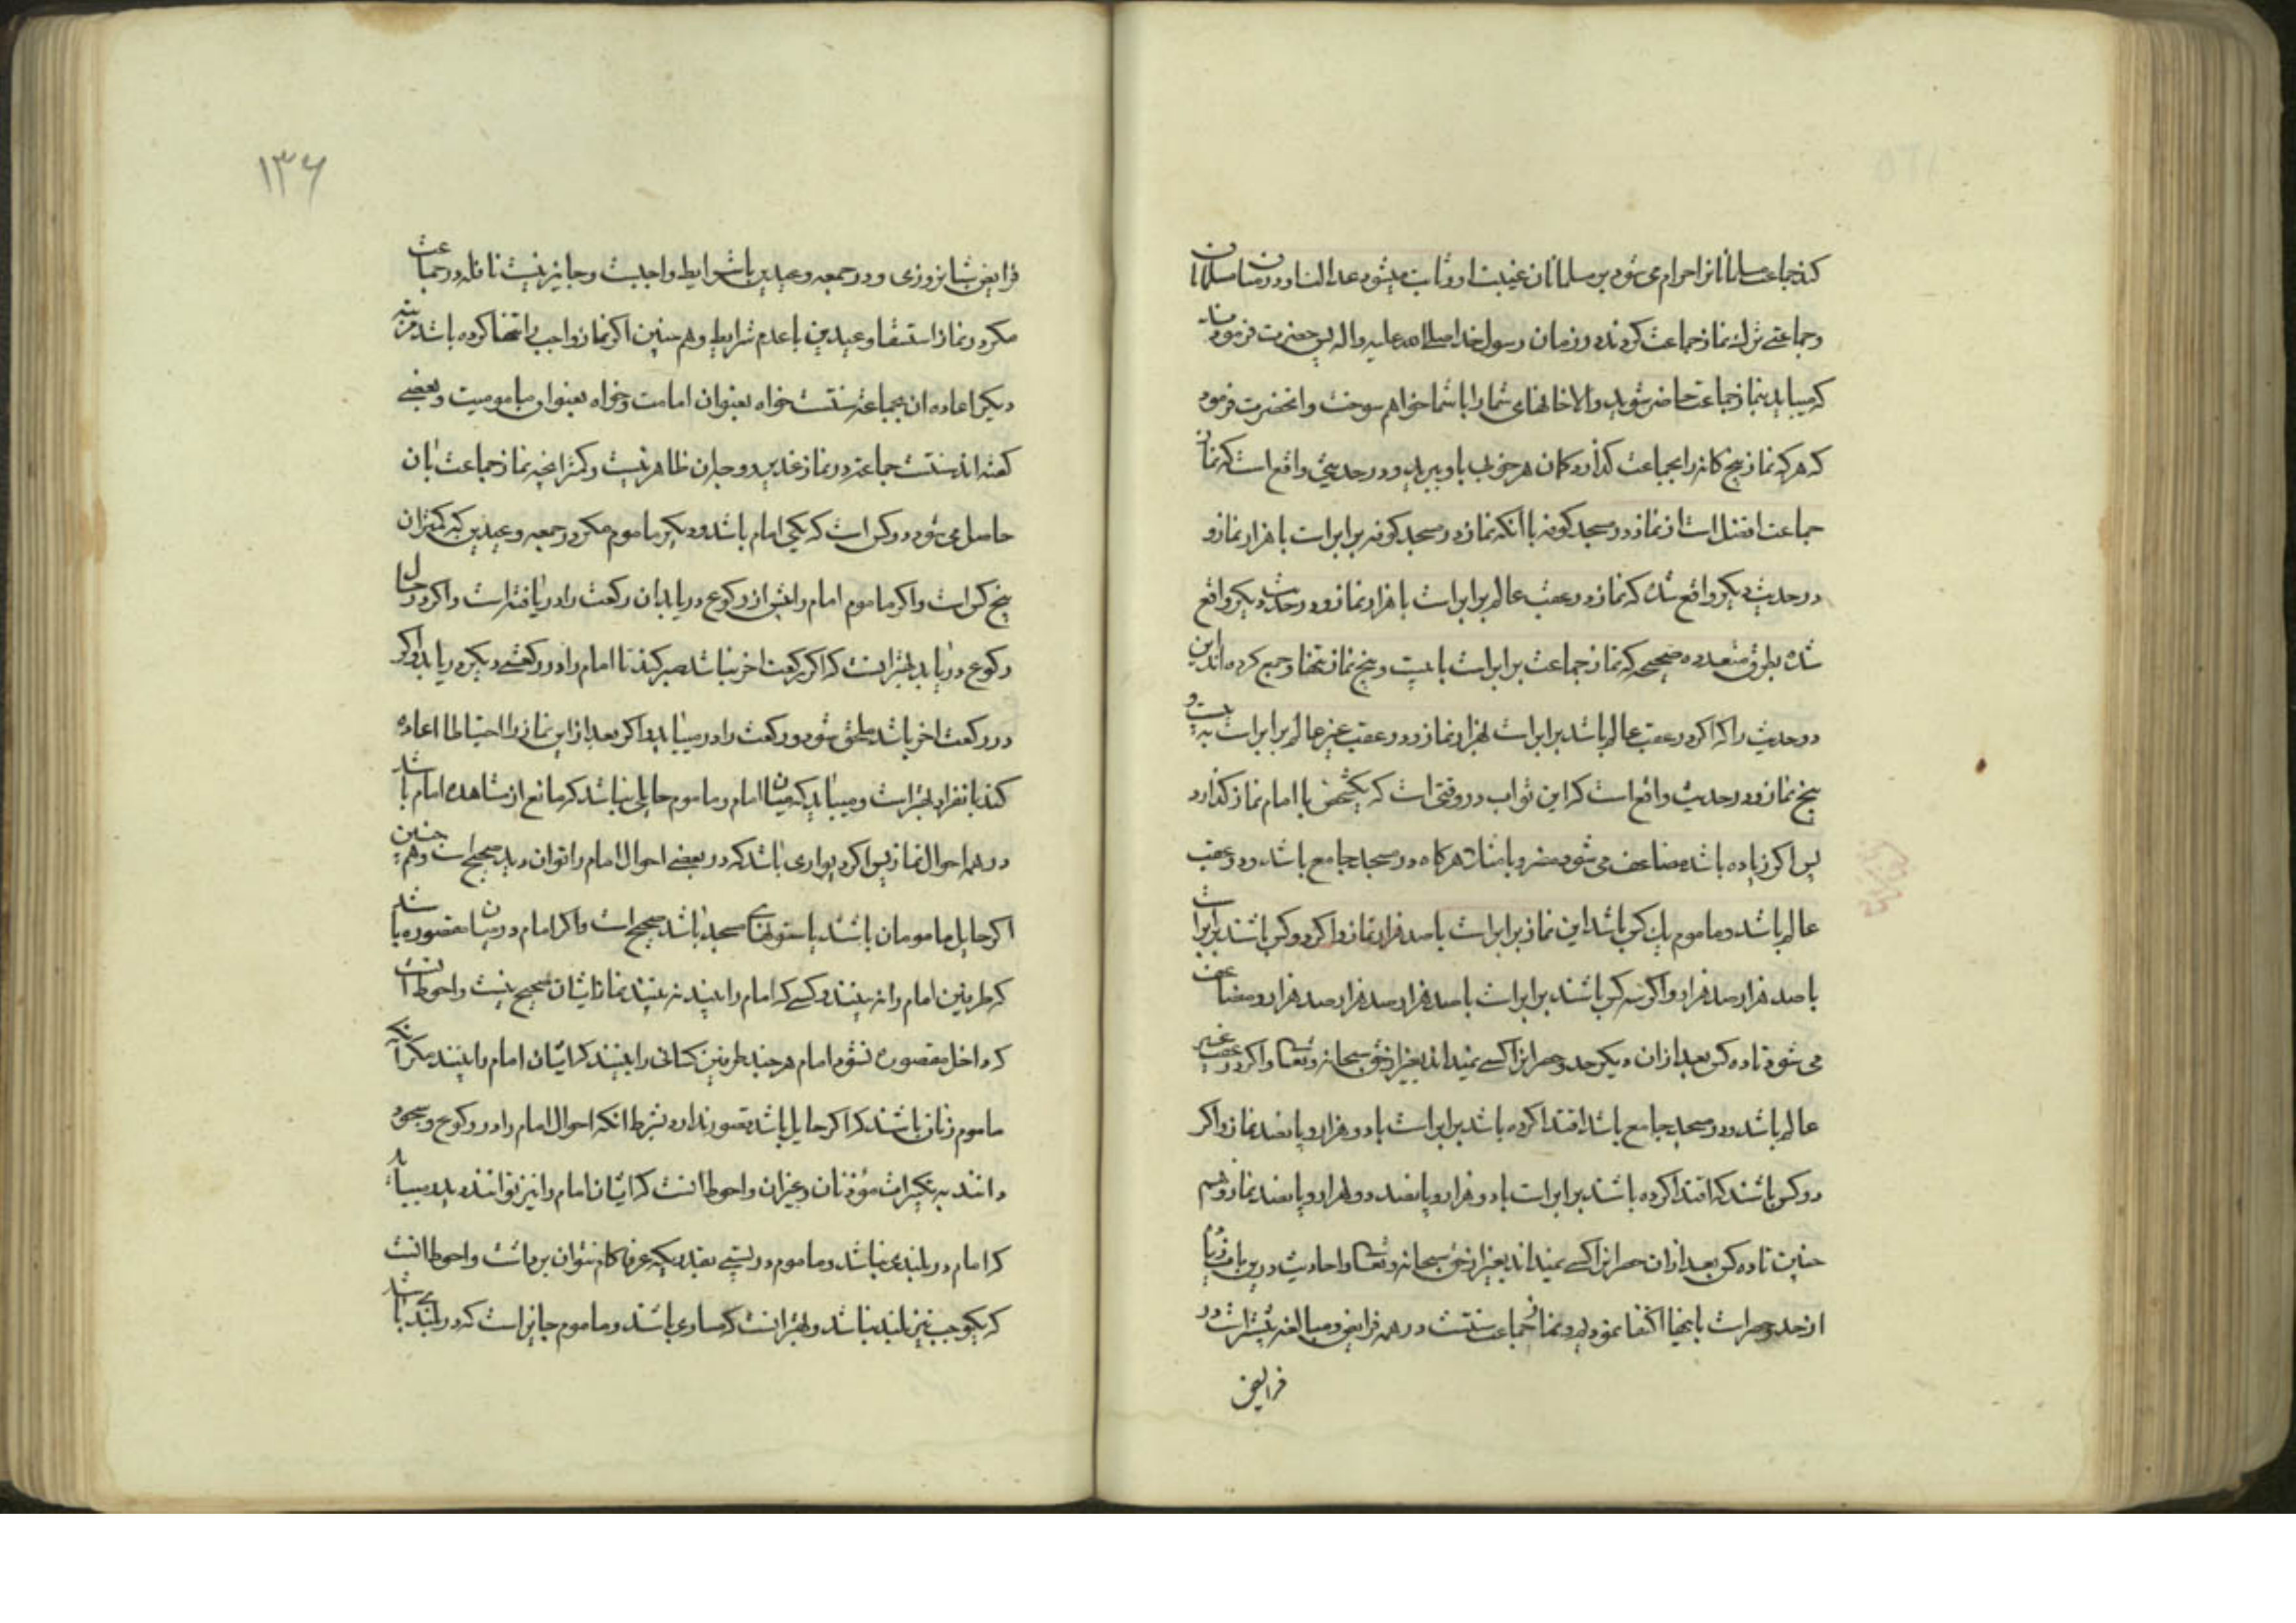 کند جماعت مسلمانانرا حرام می شود بر مسلمانان غیبت او و ثابت میشود عدالت او در میان مسلمانان
و جماعتی ترك نماز جماعت کردند در زمان رسول خدا صلی الله علیه و اله پس حضرت فرمودند
که میباید بنماز جماعت حاضر شوید والا خانهای شما را با شما خواهم سوخت و انحضرت فرمود
که هر که نماز پنج کانه را بجماعت گذارد کمان هر خوبی باو ببرید و در حدیثی واقع است که نماز
جماعت افضل است از نماز در مسجد کوفه با انکه نماز در مسجد کوفه برابر است با هزار نماز و
در حدیث دیکر واقع شده که نماز در عقب عالم برابر است با هزار نماز و در حدیث دیکر واقع
شده بطرق متعدده صحیحه که نماز جماعت برابر است با بیست و پنج نماز تنها و جمع کرده اند این
دو حدیث را که اکر در عقب عالم باشد برابر است بهزار نماز و در عقب غیر عالم برابر است به بیست و
پنج نماز و در حدیث واقع است که این ثواب در وقتی است که یکشخص با امام نماز گذارد
پس اکر زیاده باشد مضاعف می شود هر کاه در مسجد جامع باشد و در عقب
عالم باشد و ماموم یك کس باشد این نماز برابر است با صد هزار نماز و اکر دو کس باشند برابر است
با صد هزار صد هزار و اکر سه کس باشند برابر است با صد هزار صد هزار صد هزار و مضاعف
می شود تا ده کس بعد از ان دیکر حد و حصر انرا کسی نمیداند بغیر از حق سبحانه و تعالی و اکر در عقب غیر
عالم باشد و در مسجد جامع باشد اقتدا کرده باشد برابر است با دو هزار و پانصد نماز و اکر
دو کس باشند که اقتدا کرده باشند برابر است با دو هزار و پانصد دو هزار و پانصد نماز و هم
چنین تا ده کس بعد از ان حصر انرا کسی نمیداند بغیر از حق سبحانه و تعالی و احادیث درین باب زیاده
از حد و حصر است باینها اکتفا نمودیم و نماز جماعت سنتست در همه فرایض و مبالغه بیشتر است در
فرایض
۱۳۶
فرایض شبانروزی و در جمعه و عیدین با شرایط واجبست و جایز نیست نافله در جماعت
مکر در نماز استسقا و عیدین با عدم شرایط و هم چنین اکر نماز واجب را تنها کرده باشد مرتبه
دیکر اعاده ان بجماعت سنتست خواه بعنوان امامت و خواه بعنوان مامومیت و بعضی
کفته اند سنتست جماعت در نماز غدیر و وجه ان ظاهر نیست و کمتر انچه نماز جماعت بان
حاصل می شود دو کس است که یکی امام باشد و دیکر ماموم مکر در جمعه و عیدین که کمتر ان
پنج کس است و اکر ماموم امام را پیش از رکوع دریابد ان رکعت را دریافته است و اکر در حال
رکوع دریابد بهتر انست که اکر رکعت اخر نباشد صبر کند تا امام را در رکعت دیکر دریابد و اکر
در رکعت اخر باشد ملحق شود و رکعت را در مییابد و اکر بعد از این نماز را احتیاطا اعاده
کند بانفراد بهتر است و میباید که میان امام و ماموم حایلی نباشد که مانع از مشاهده امام باشد
در همه احوال نماز پس اکر دیواری باشد که در بعضی احوال امام را توان دید صحیح است و هم چنین
اکر حایل مامومان باشند یا ستونهای مسجد باشد صحیح است و اکر امام در میان مقصوره باشد
که طرفین امام را نه بینند و کسی که امام را بیند نه بینند نماز ایشان صحیح نیست و احوط انست
که داخل مقصوره نشود امام هر چند طرفین کسانی را بینند که ایشان امام را بینند مکر آنکه
ماموم زنان باشند که اکر حایل باشد قصور ندارد بشرط انکه احوال امام را در رکوع و سجود
دانند به تکبیرات مؤذنان و غیر ان و احوط انست که ایشان امام را نیز توانند دید و میباید
که امام در بلندی نباشد و ماموم در پستی بقدریکه عرفا کام نتوان برداشت و احوط انست
که یکوجب نیز بلند نباشد و بهتر انست که مساوی باشند و ماموم جایز است که در بلندی باشد